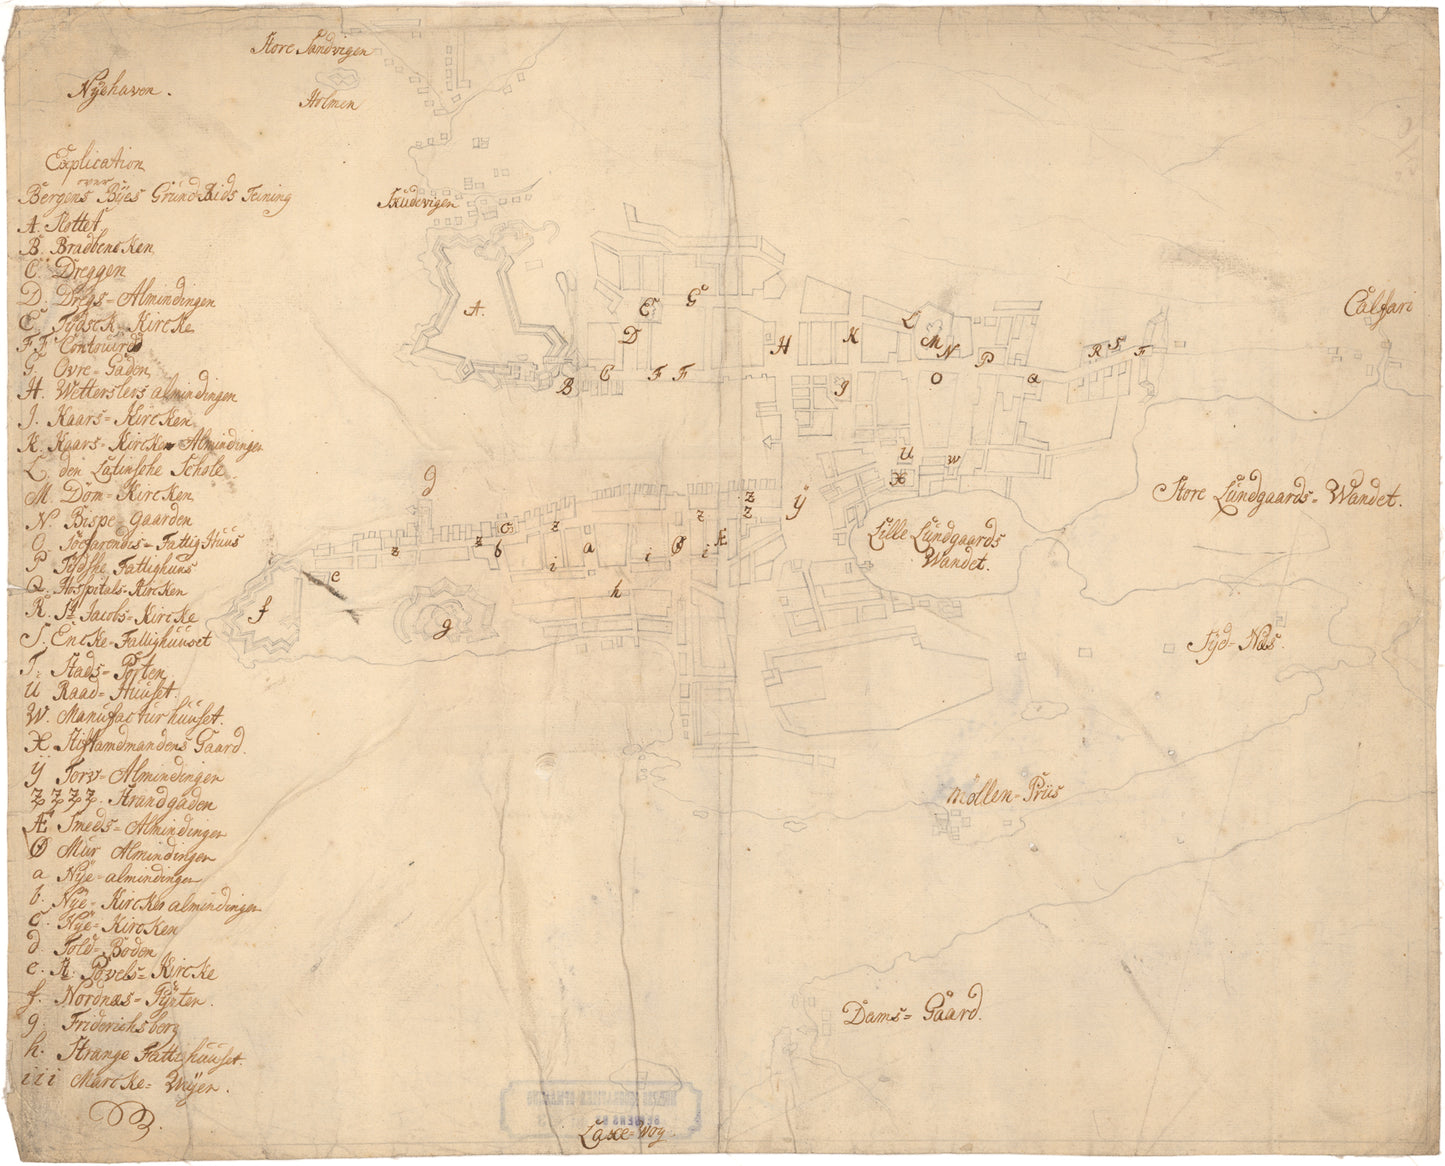 Store Sandvigen
Nÿehaven.
Holmen
Skudevigen
Explication
over
Bergens Bÿes Grund-Rids Teining
A. Slottet
B. Bradbencken
C. Dreggen
D. Dregs-Almindingen
E. Tydsck-Kircke
FF Contoired
G. Ovre-Gaden
H. Wetterslers almindingen
J. Kaars-Kircken
K. Kaars-Kircken Almindingen
L. den Latinsche Schole
M. Dom-Kircken
N. Bispe-Gaarden
O. Søefarendis-Fattig Huus
P. Tydske Fattighuus
Q. Hospitals-Kircken
R. St. Jacobs-Kircke
S. Encke-Fattighuuset
T. Stads-Porten
U Raad-Huuset.
W. Manufacturhuuset.
X Stiftamdmandens Gaard.
Ÿ Torv-Almindingen
ZZZZ. Strandgaden
Æ Smeds-Almindingen
Ø Mur Almindingen
a Nÿe-almindingen
b. Nÿe-Kirckes almindingen
c. Nÿe-Kircken
d. Told-Boden
e. St. Povels-Kircke
f. Nordnæs-Pÿnten.
g. Friderichsberg
h. Strange Fattighuuset.
iii Marcke-Weÿen.
A.
B
C
D
E
F F
G
H
K
J
L
M
N
O
P
Q
R
S
T
U
W
X
Ÿ
Z
Z
Z
Z
Z
Z
Æ
Ø
a
b
c
d
e
f
g
h
i
i
i
Calfari
Store Lundgaards-Wandet.
Lille Lundgaards
Wandet.
Sÿd-Næs.
Möllen-Priis
Dams-Gaard.
Laxe-Vog